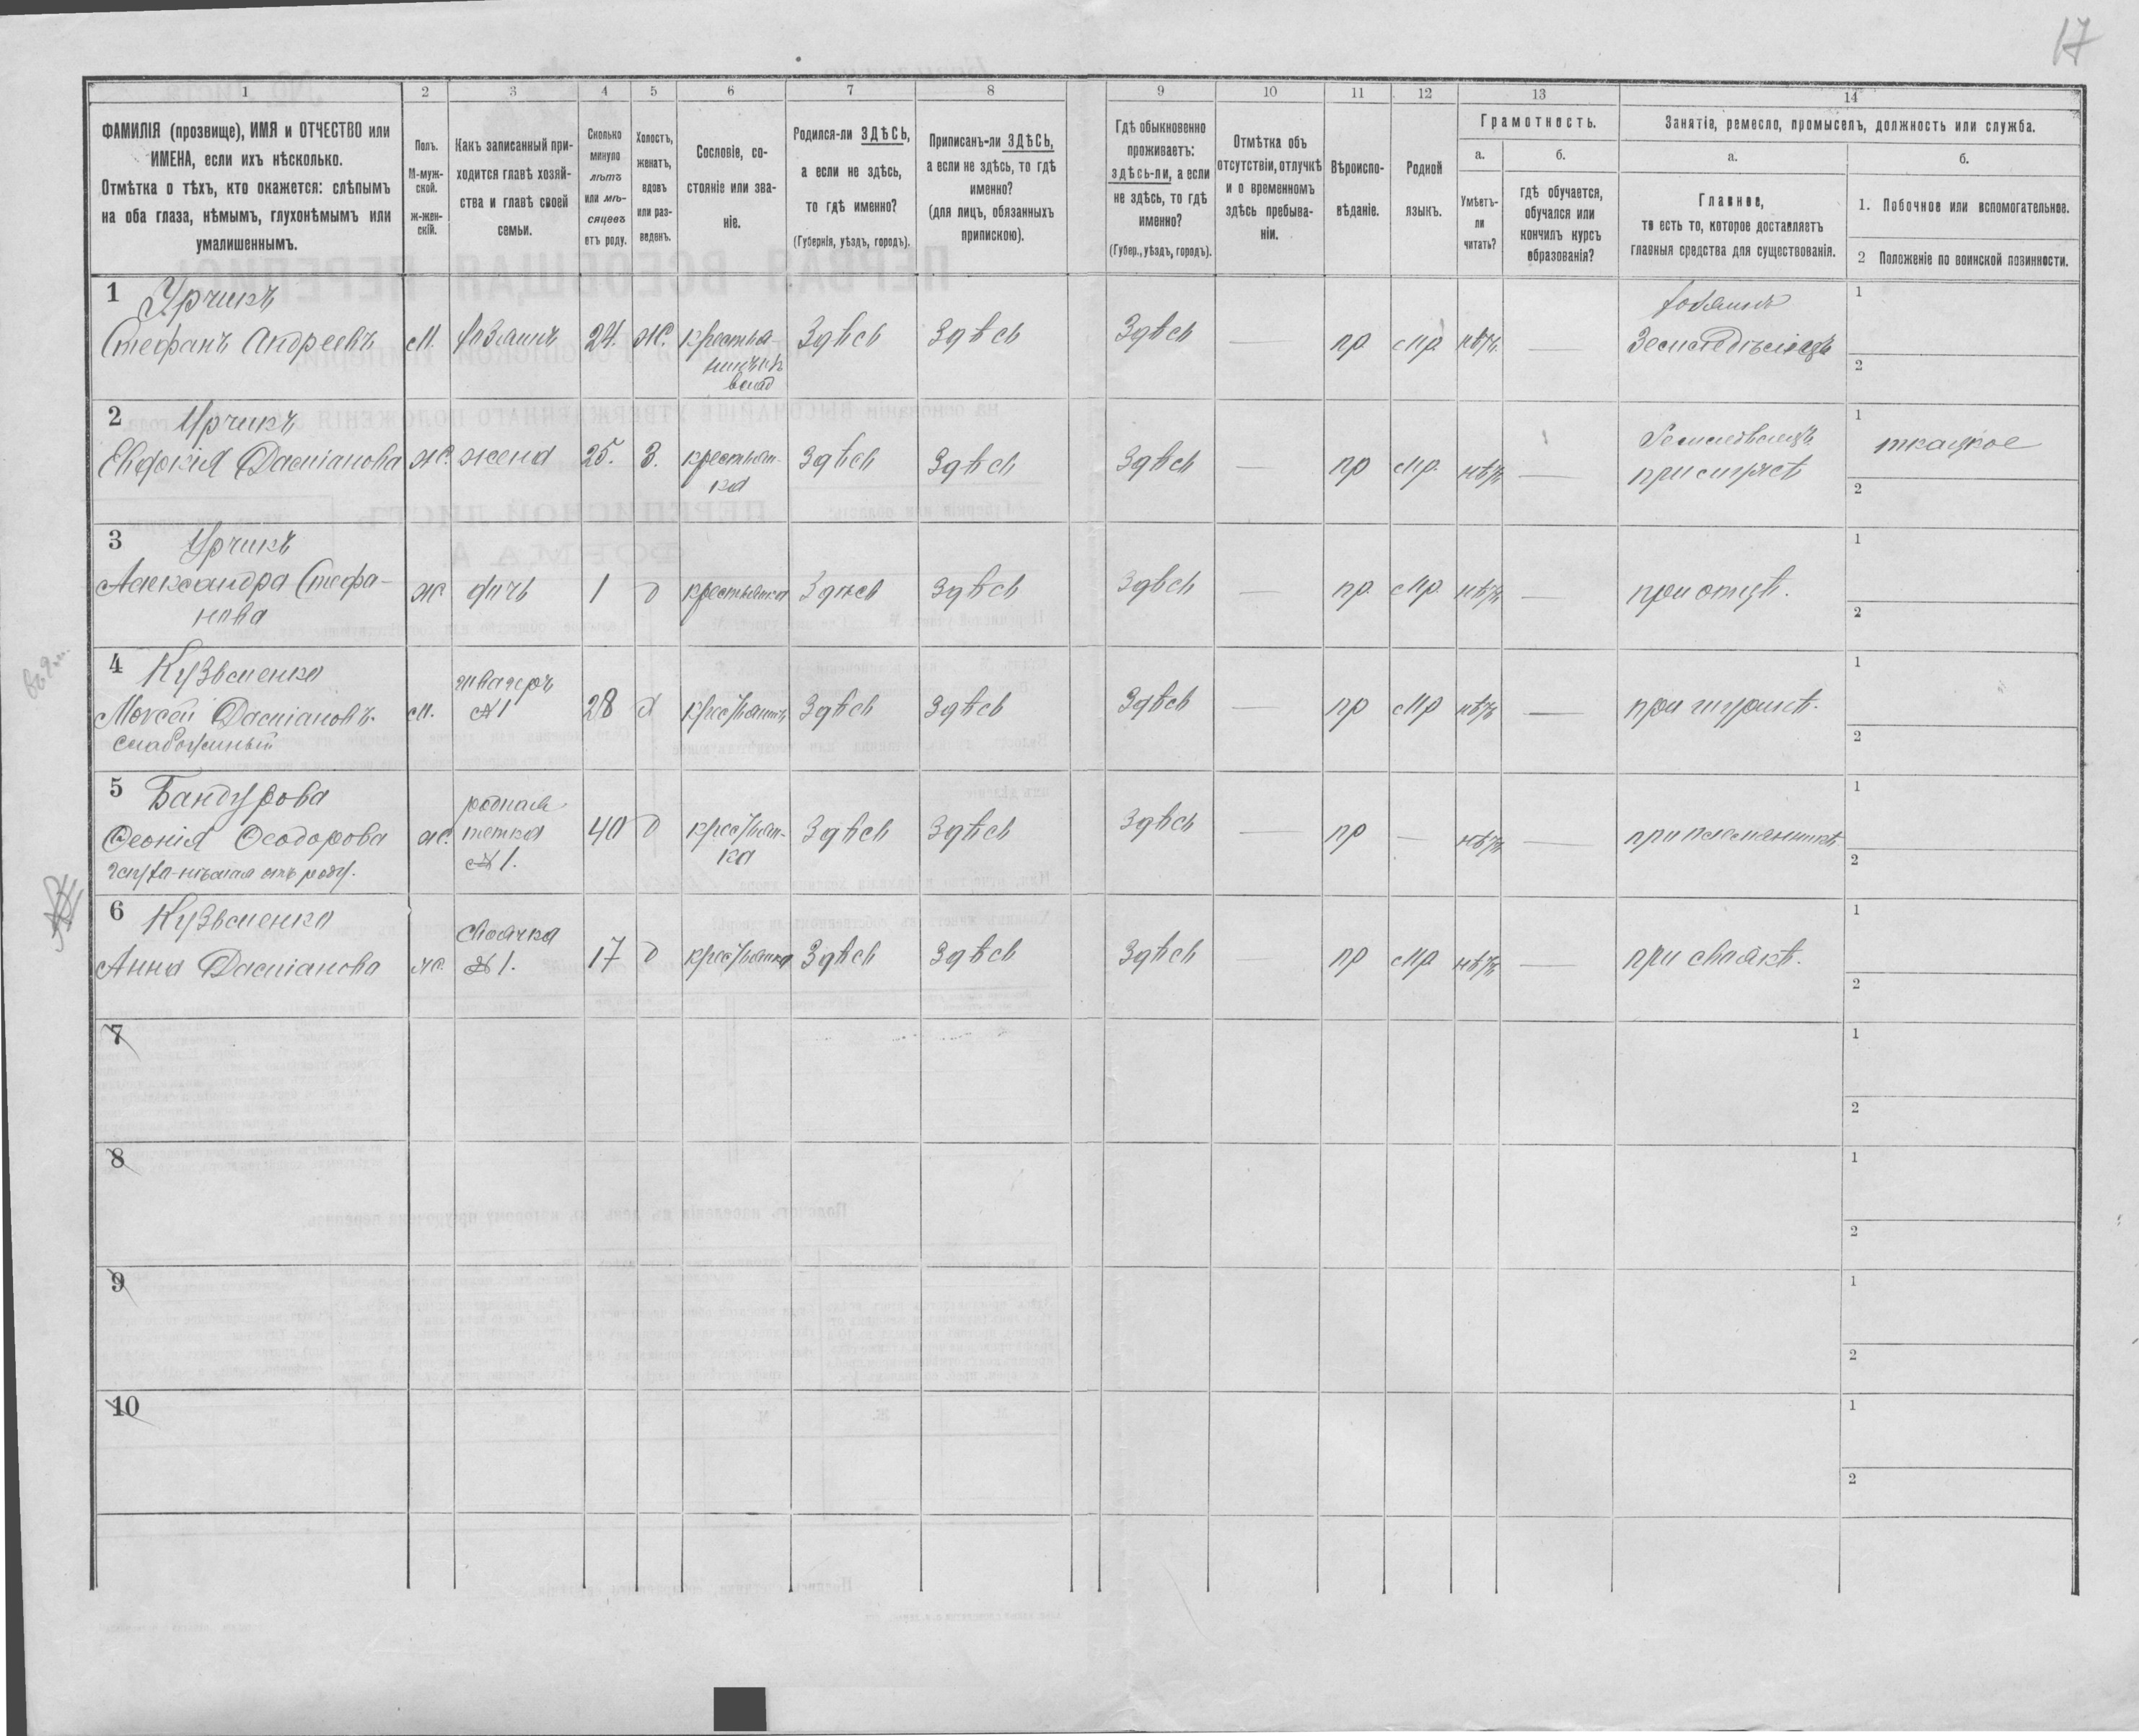 17
1
2
3
4
5
6
7
8
9
10
11
12
13
14
ФАМИЛІЯ (прозвище), ИМЯ и ОТЧЕСТВО или
ИМЕНА, если ихъ нѣсколько.
Отмѣтка о тѣхъ, кто окажется: слѣпымъ
на оба глаза, нѣмымъ, глухонѣмымъ или
умалишеннымъ.
Полъ.
М-муж-
ской.
ж-жен-
скій.
Какъ записанный при-
ходится главѣ хозяй-
ства и главѣ своей
семьи.
Сколько
минуло
лѣтъ
или мѣ-
сяцевъ
отъ роду.
Холостъ,
женатъ,
вдовъ
или раз-
веденъ.
Сословіе, со-
стояніе или зва-
ніе.
Родился-ли ЗДѢСЬ,
а если не здѣсь,
то гдѣ именно?
(Губернія, уѣздъ, городъ).
Приписанъ-ли ЗДѢСЬ,
а если не здѣсь, то гдѣ
именно?
(для лицъ, обязанныхъ
припискою).
Гдѣ обыкновенно
проживаетъ:
здѣсь-ли, а если
не здѣсь, то гдѣ
именно?
(Губер., уѣздъ, городъ).
Отмѣтка объ
отсутствіи, отлучкѣ
и о временномъ
здѣсь пребыва-
ніи.
Вѣроиспо-
вѣданіе.
Родной
языкъ.
Грамотность.
а.
Умѣетъ-
ли
читать?
б.
гдѣ обучается,
обучался или
кончилъ курсъ
образованія?
Занятіе, ремесло, промыселъ, должность или служба.
а.
Главное,
то есть то, которое доставляетъ
главныя средства для существованія.
б.
1. Побочное или вспомогательное.
2 Положеніе по воинской повинности.
1 Урчикъ
Стефанъ Андреевъ м. хозяинъ 24. Ж. крестья- Здѣсь Здѣсь Здѣсь — пр. мр. нѣтъ —
хозяинъ
Земледѣлецъ
1
2
2 Урчикъ
Евдокія Даміанова ж. жена 25. З. крестьян- Здѣсь Здѣсь Здѣсь — пр мр. нѣтъ —
ка
1 ткацкое
2
3 Урчикъ
Александра Стефа- ж дочь 1 д крестьянка Здѣсь Здѣсь Здѣсь — пр. мр. нѣтъ — при отцѣ.
нова
1
2
4 Кузьменко
Моисей Даміановъ. м. 28 Х крестьянинъ Здѣсь Здѣсь Здѣсь — пр мр нѣтъ — при шуринѣ.
№ 1
1
2
5 Бандурова
Ѳеонія Ѳеодорова ж. родная
тетка
№ 1. 40 д крестьян-
ка Здѣсь Здѣсь Здѣсь — пр — нѣтъ — при племянникѣ
глухо-нѣмая отъ роду.
1
2
6 Кузьменко
Анна Даміанова ж. своячка
№ 1. 17 д крестьянка Здѣсь Здѣсь Здѣсь — пр мр нѣтъ — при своякѣ.
1
2
7
1
2
8
1
2
9
1
2
10
1
2